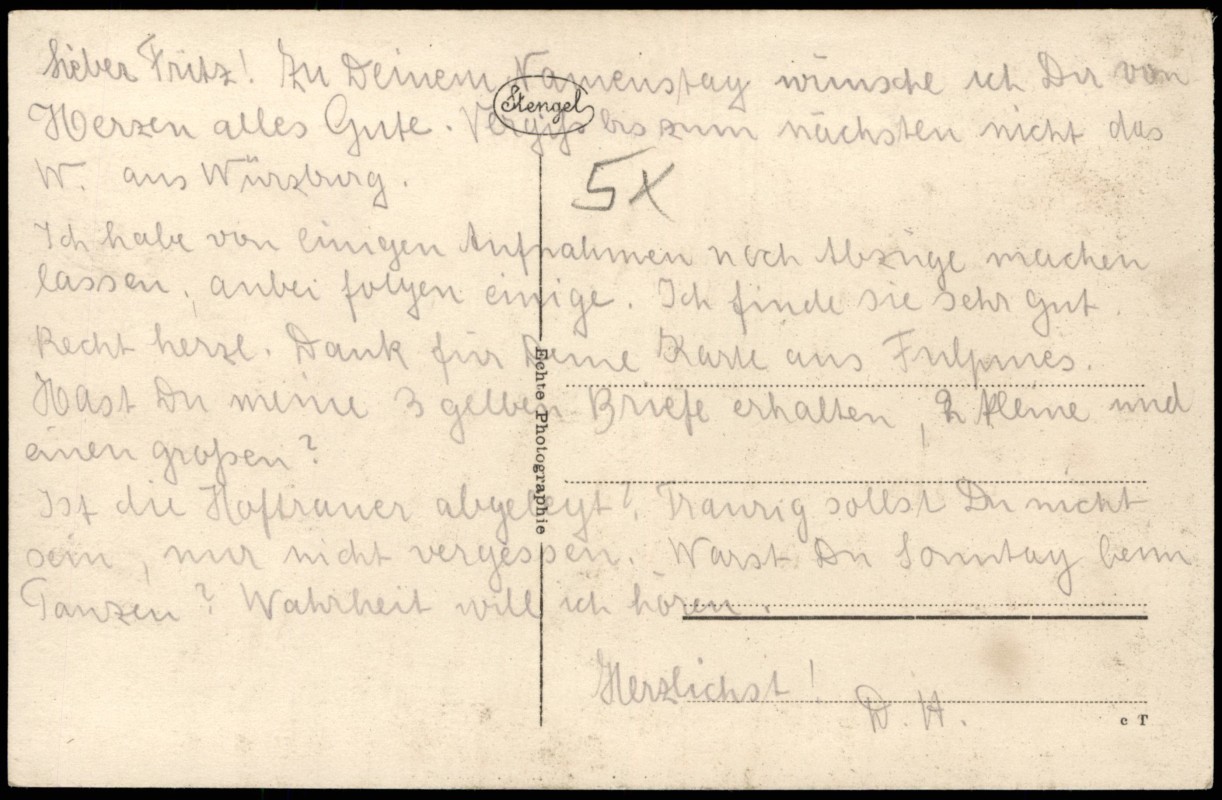 Lieber Fritz! Zu Deinem Namenstag wünsche ich Dir von
Stengel
Herzen alles Gute. Vergiß bis zum nächsten nicht das
W. aus Würzburg.
5x
Ich habe von einigen Aufnahmen noch Abzüge machen
lassen, anbei folgen einige. Ich finde sie sehr gut.
Recht herzl. Dank für Deine Karte aus Fulpmes.
Hast Du meine 3 gelben Briefe erhalten, 2 kleine und
einen großen?
Ist die Hoftrauer abgelegt? Traurig sollst Du nicht
sein, nur nicht vergessen. Warst Du Sonntag beim
Tanzen? Wahrheit will ich hören.
Echte Photographie
Herzlichst!
D. H.
c T